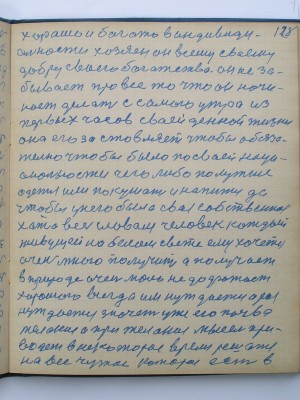 128
хорашо и богато в индивиди-
альности хозяен он всему своему
добру своего богатства он не за-
бывает про все то что он начи-
нает делат с самого утра из
первых часов своей денной жизни
она его заставляет чтобы обяза-
телно чтобы было посваей наци-
ональности чего либо получше
одется или покушат и напитки да
чтобы у него была своя собственная
хата всем словам человек каждый
живущей на белом свете ему хочется
очен много получит а получает
в природе очен мало не
хорошого всегда им нужда
нужда значет уже его
желание а при желании мысел при-
водет в некоторое время
на все чужое которое ест в